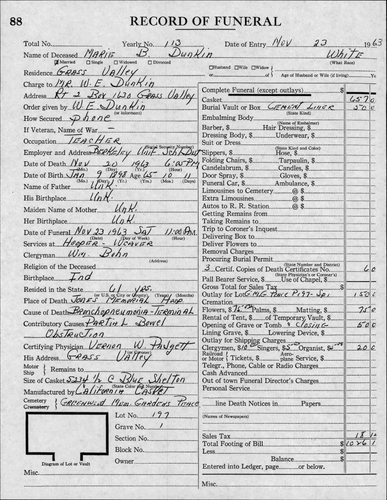 88 RECORD OF FUNERAL
Total No. Yearly No. 113 Date of Entry Nov 23 1963
Name of Deceased MARIE B. DUNKIN White
Married Single Widowed Divorced Husband Wife Widow (What Race)
Residence Grass Valley Age of Husband or Wife (if living) Yrs.
Charge to Mr W.E. Dunkin
Address Rt 2 Box 1620 Grass Valley
Order given by W.E. Dunkin
How Secured phone
If Veteran, Name of War
Occupation TEACHER
Employer and Address Berkeley Unit. Sch. Dist
Date of Death Nov 20 1963 6:25 PM
Date of Birth Jan 9 1898 Age 65 10 11
Name of Father Unk.
His Birthplace Unk.
Maiden Name of Mother Unk.
Her Birthplace Unk.
Date of Funeral Nov 23 1963 Sat 11:00 AM
Services at Hooper-Weaver
Clergyman Wm. Bohn
Religion of the Deceased Ind
Resided in the State 61 yrs.
Place of Death Jones Memorial Hosp
Cause of Death Bronchopneumonia-Terminal
Contributory Causes Partial Bowel
Obstruction
Certifying Physician Vernon W. Padgett
His Address Grass Valley
Motor Ship Remains to
Size of Casket Blue Shelton
Manufactured by California Casket
Cemetery Crematory Greenwood Mem. Gardens
Lot No. 197
Grave No. 1
Section No.
Block No.
Owner
Diagram of Lot or Vault
Misc.
Complete Funeral (except outlays)
Casket 657
Burial Vault or Box Cement Liner 50
(State Kind)
Embalming Body
(Name of Embalmer)
Barber, Hair Dressing,
Dressing Body, Underwear,
Suit or Dress
(State Kind and Color)
Slippers, Hose,
Folding Chairs, Tarpaulin,
Candelabrum, Candles,
Door Spray, Gloves,
Funeral Car, Ambulance,
Limousines to Cemetery @
Extra Limousines @
Autos to R. R. Station @
Getting Remains from
Taking Remains to
Trip to Coroner's Inquest
Delivering Box to
Deliver Flowers to
Removal Charges
Procuring Burial Permit
(State Number and District)
3 Certif. Copies of Death Certificates No. 6
Pall Bearer Service Use of Chapel,
Gross Total for Sales Tax
Outlay for Lot 150
Cremation
Flowers, Palms, Matting,
Rental of Tent, of Temporary Vault,
Opening of Grave or Tomb Closing 50
Lining Grave, Lowering Device,
Outlay for Shipping Charges
Clergymen, Singers, Organist, 20
Railroad or Motor Tickets, Aeroplane Service,
Telegr., Phone, Cable or Radio Charges
Cash Advanced
Out of town Funeral Director's Charges
Personal Service
line Death Notices in Papers
(Names of Newspapers)
Sales Tax 18
Total Footing of Bill
Less
Balance
Entered into Ledger, page or below.
Misc.